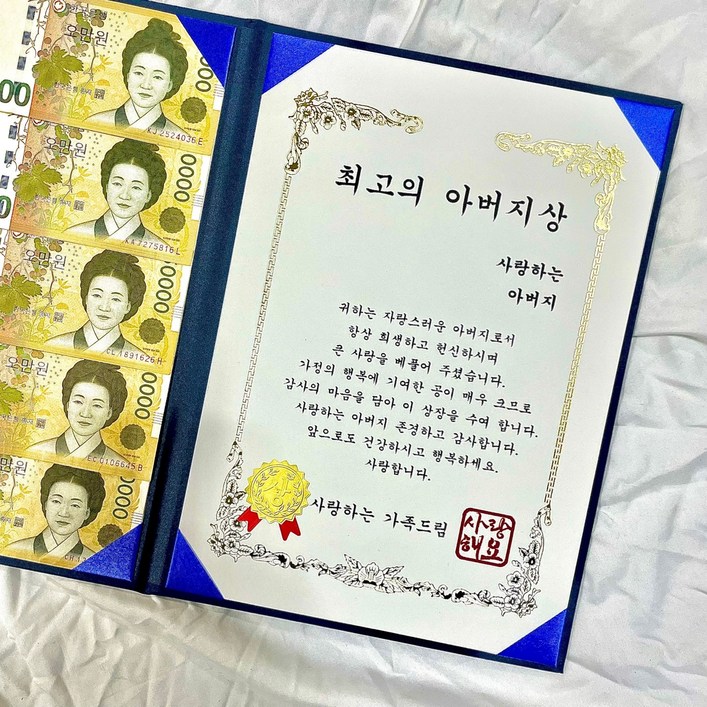 한국은행
오만원
KJ 2524036 E
오만원
KK 7275816 L
오만원
1891626 H
오만원
EC 0106645 B
오만원
최고의 아버지상
사랑하는
아버지
귀하는 자랑스러운 아버지로서
항상 희생하고 헌신하시며
큰 사랑을 베풀어 주셨습니다.
가정의 행복에 기여한 공이 매우 크므로
감사의 마음을 담아 이 상장을 수여 합니다.
사랑하는 아버지 존경하고 감사합니다.
앞으로도 건강하시고 행복하세요.
사랑합니다.
상
사랑하는 가족드림
사랑
해요